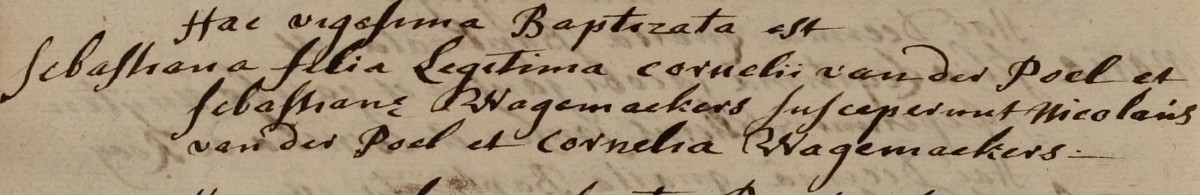 Hac vigesima Baptizata est
sebastiana filia Legitima cornelii van der Poel et
sebastianę Wagemaekers susceperunt Nicolaus
van der Poel et cornelia Wagemaekers.